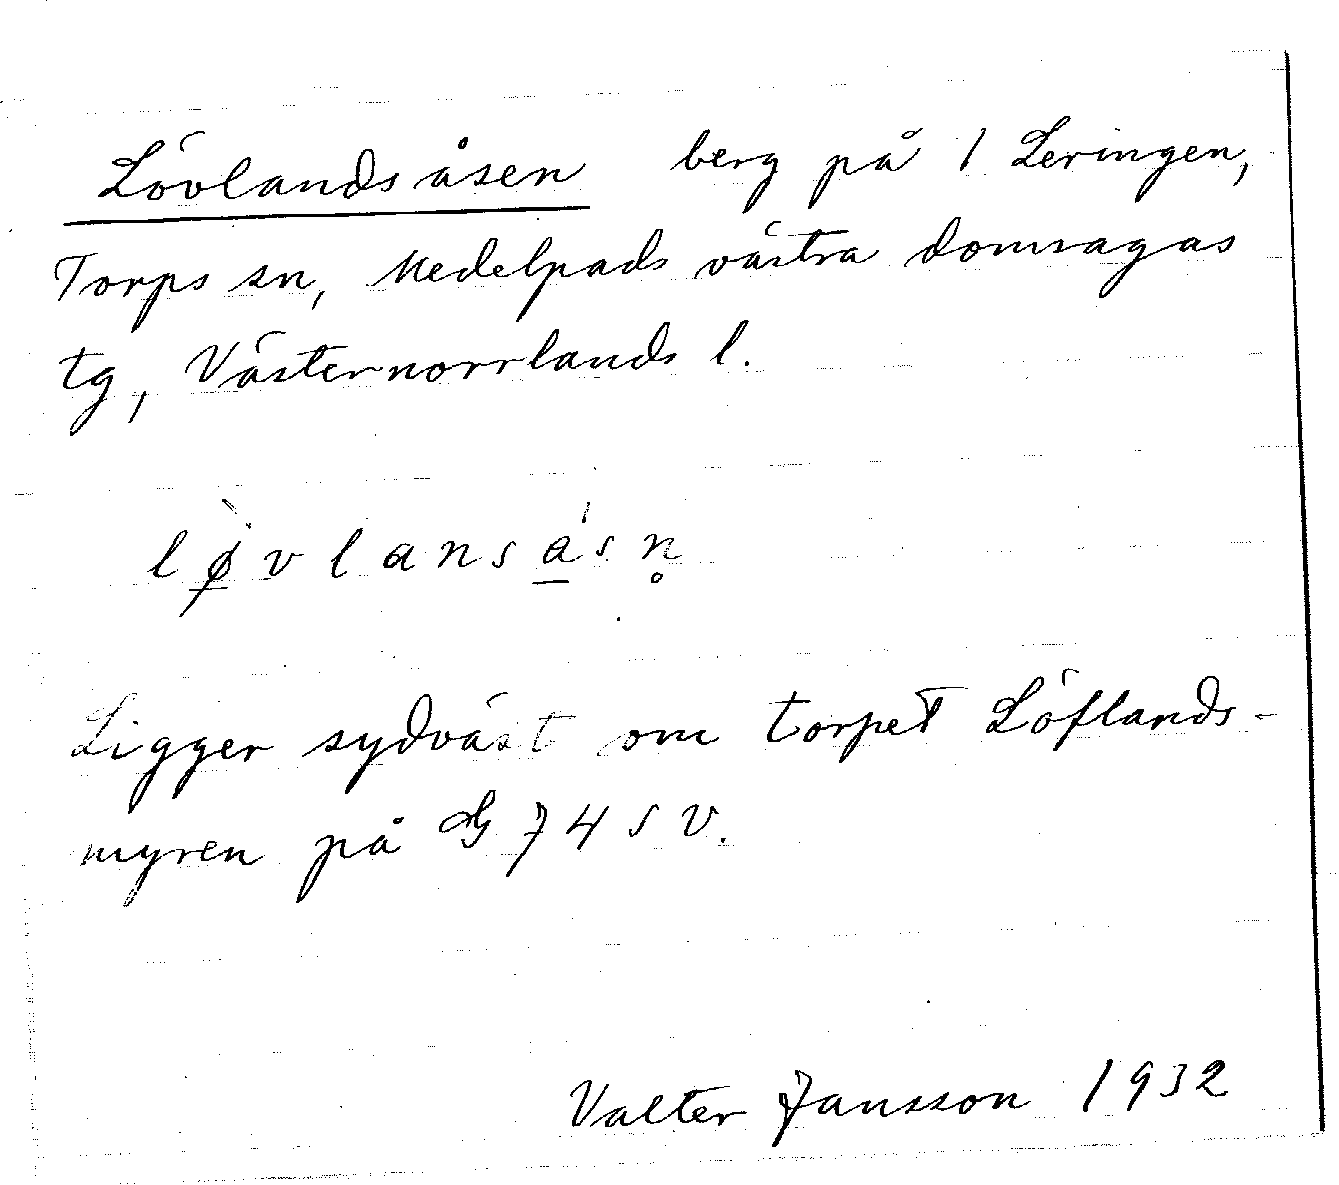 Lövlandsåsen berg på 1 Leringen,
Torps sn, Medelpads västra domsagas
tg, Västernorrlands l.
lø̠̀vlansá̠sn̥
Ligger sydväst om torpet Löflands-
myren på G 74 SV.
Valter Jansson 1932